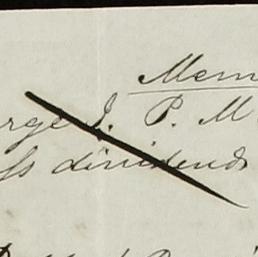 Mem
rge J. P. M
ss dividends